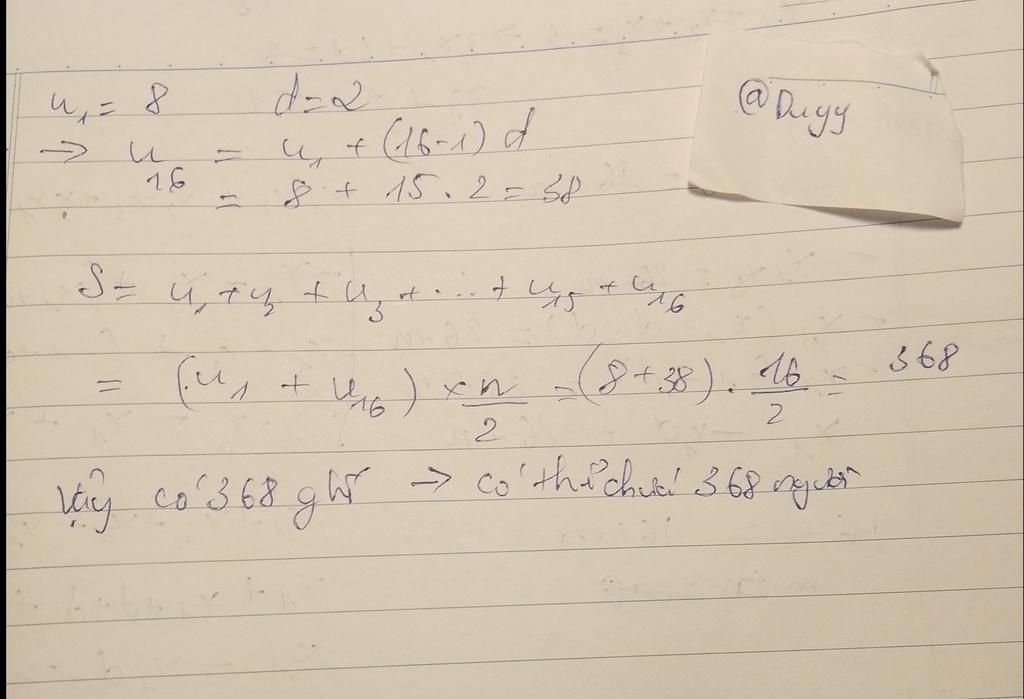 u₁ = 8 d = 2
@Duyy
→ u₁₆ = u₁ + (16-1) d
= 8 + 15 . 2 = 38
S = u₁ + u₂ + u₃ + ... + u₁₅ + u₁₆
= (u₁ + u₁₆) × n/2 = (8 + 38) . 16/2 = 368
Vậy có 368 ghế → có thể chứa 368 người